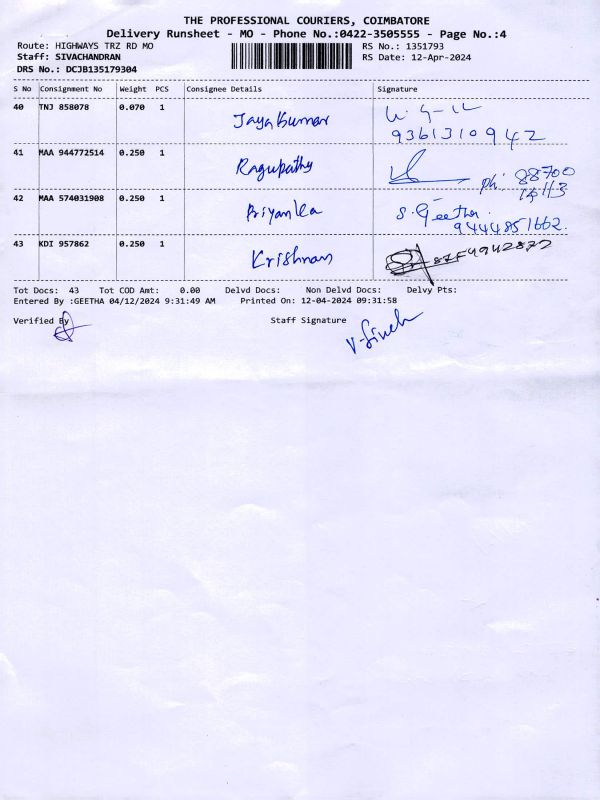 THE PROFESSIONAL COURIERS, COIMBATORE
Delivery Runsheet - MO - Phone No.:0422-3505555 - Page No.:4
Route: HIGHWAYS TRZ RD MO RS No.: 1351793
Staff: SIVACHANDRAN RS Date: 12-Apr-2024
DRS No.: DCJB135179304
S No Consignment No Weight PCS Consignee Details Signature
40 TNJ 858078 0.070 1 Jayakumar
9361310942
41 MAA 944772514 0.250 1 Ragupathy ph: 88700
42 MAA 574031908 0.250 1 Priyanka S. Geetha.
9444851662.
43 KDI 957862 0.250 1 Krishnan
Tot Docs: 43 Tot COD Amt: 0.00 Delvd Docs: Non Delvd Docs: Delvy Pts:
Entered By :GEETHA 04/12/2024 9:31:49 AM Printed On: 12-04-2024 09:31:58
Verified By Staff Signature